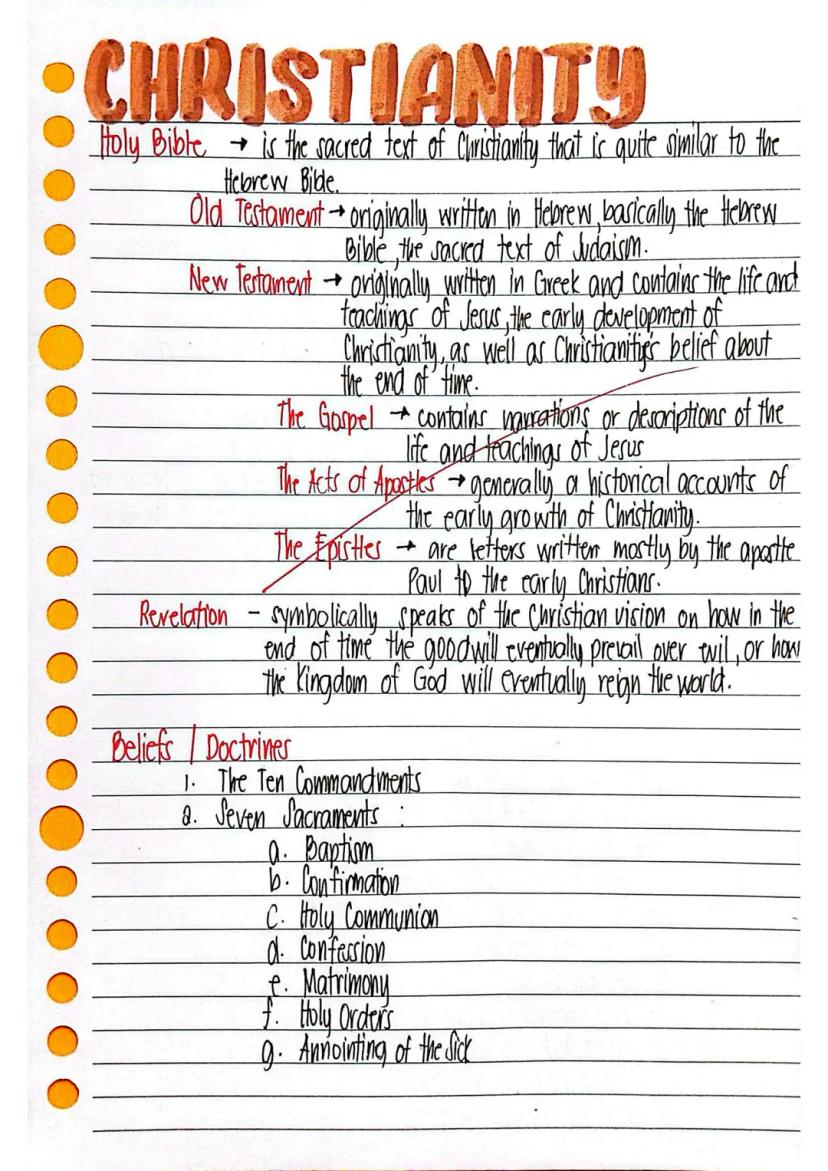 CHRISTIANITY
Holy Bible → is the sacred text of Christianity that is quite similar to the
Hebrew Bible.
Old Testament → originally written in Hebrew, basically the Hebrew
Bible, the sacred text of Judaism.
New Testament → originally written in Greek and contains the life and
teachings of Jesus, the early development of
Christianity, as well as Christianity's belief about
the end of time.
The Gospel → contains narrations or descriptions of the
life and teachings of Jesus
The Acts of Apostles → generally a historical accounts of
the early growth of Christianity.
The Epistles → are letters written mostly by the apostle
Paul to the early Christians.
Revelation - symbolically speaks of the Christian vision on how in the
end of time the good will eventually prevail over evil, or how
the Kingdom of God will eventually reign the world.
Beliefs / Doctrines
1. The Ten Commandments
2. Seven Sacraments :
a. Baptism
b. Confirmation
c. Holy Communion
d. Confession
e. Matrimony
f. Holy Orders
g. Annointing of the Sick